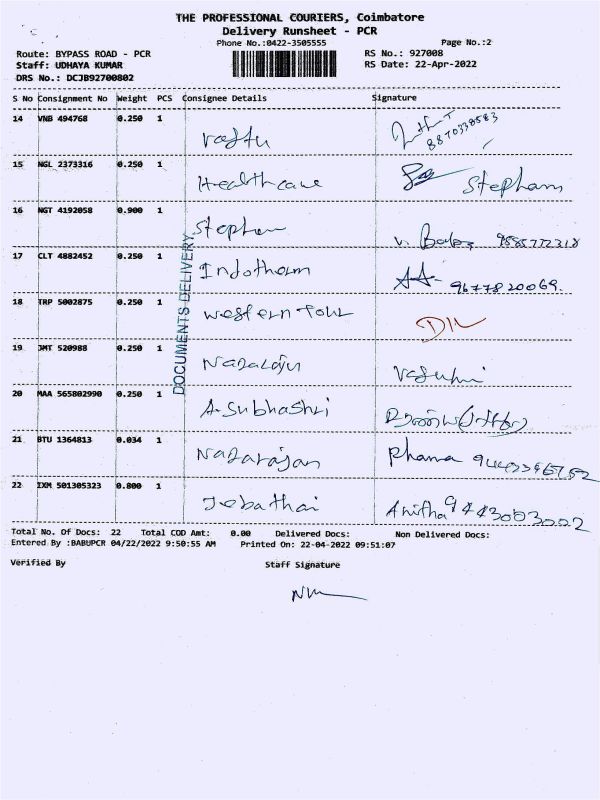 THE PROFESSIONAL COURIERS, Coimbatore
Delivery Runsheet - PCR
Phone No.:0422-3505555
Page No.:2
Route: BYPASS ROAD - PCR
RS No.: 927008
Staff: UDHAYA KUMAR
RS Date: 22-Apr-2022
DRS No.: DCJB92700802
S No Consignment No Weight PCS Consignee Details Signature
14 VNB 494768 0.250 1
8870338583
15 NGL 2373316 0.250 1 Healthcare Stepham
16 NGT 4192058 0.900 1 Stephen
17 CLT 4882452 0.250 1 Indotherm 9677820069.
18 TRP 5002875 0.250 1 Western Tour
19 JMT 520988 0.250 1 Nagaraju
20 MAA 565802990 0.250 1 A. Subhashri
21 BTU 1364813 0.034 1 Nagarajan
22 IXM 501305323 0.800 1 Jebathai Anitha 9443003002
DOCUMENTS DELIVERY
Total No. Of Docs: 22 Total COD Amt: 0.00 Delivered Docs: Non Delivered Docs:
Entered By :BABUPCR 04/22/2022 9:50:55 AM Printed On: 22-04-2022 09:51:07
Verified By Staff Signature